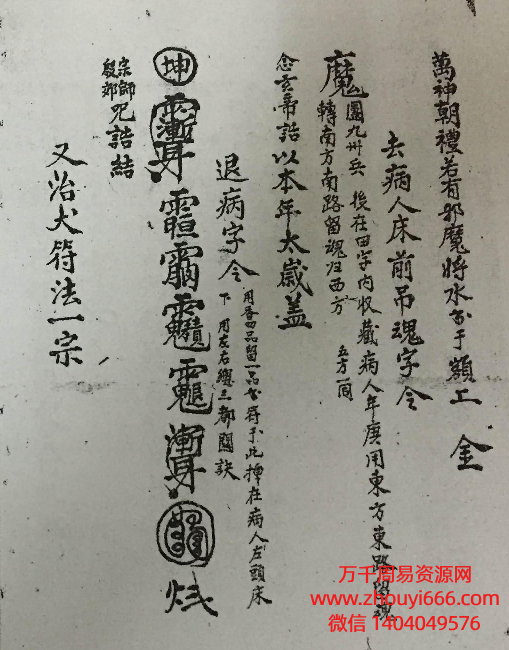 萬神朝禮若有邪魔將水于額上 金
去病人床前吊魂字令
魔 圍九州兵 後在田字內收藏病人年庚用東方東路留魂
轉南方南路留魂归西方 五方一同
念玄帝誥以本年太歲盖
退病字令 用香四品留一品符于此押在病人左頭床
下 用左右總三都關訣
坤
宗師
殷郊 咒誥結
又治犬符法一宗
万千周易资源网
www.zhouyi666.com
微信 1404049576